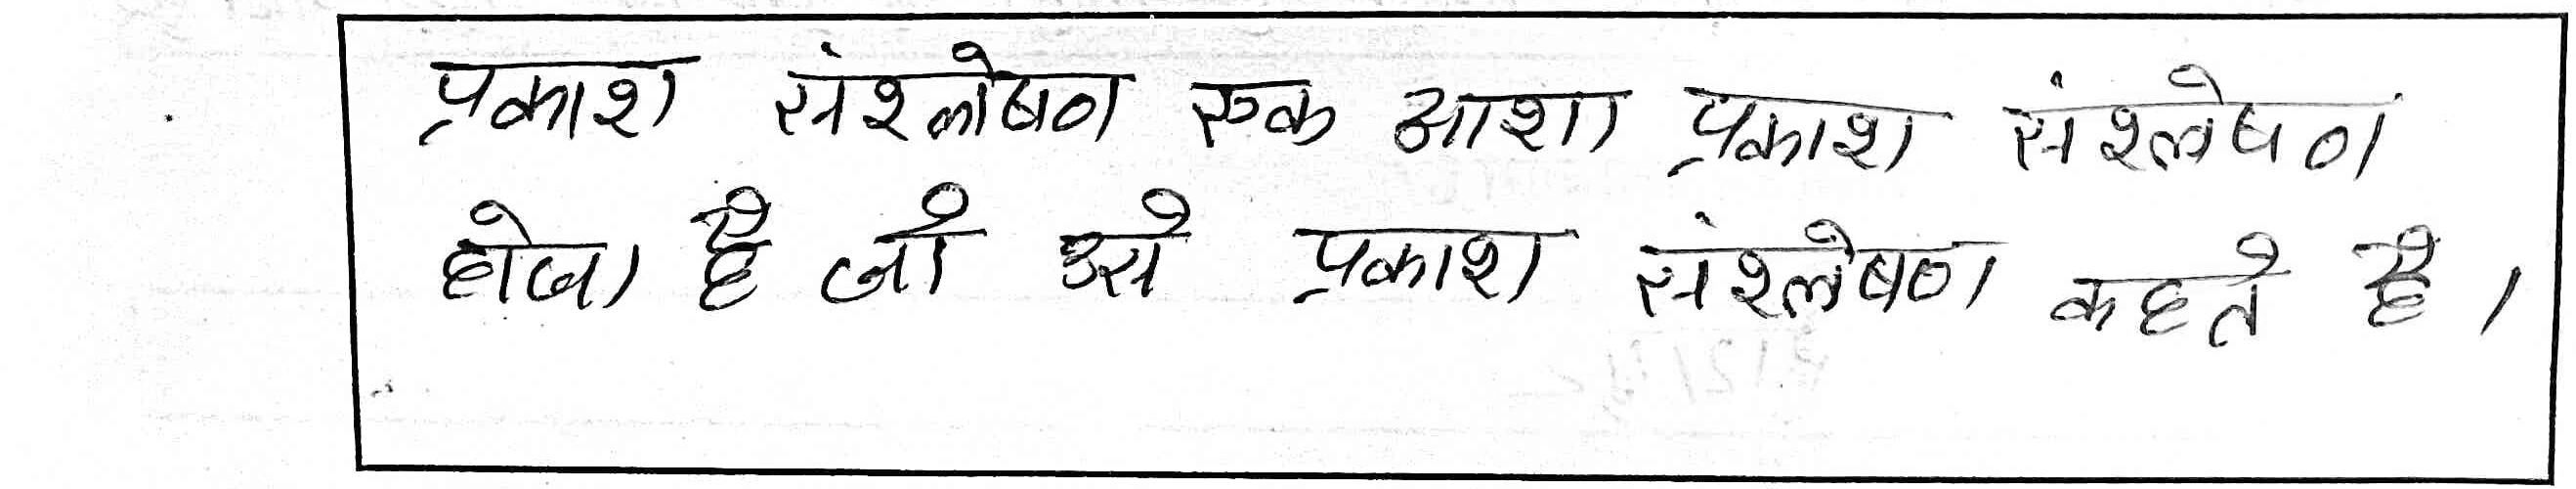 प्रकाश संश्लेषण एक आशा प्रकाश संश्लेषण
होता है जो उसे प्रकाश संश्लेषण कहते है।